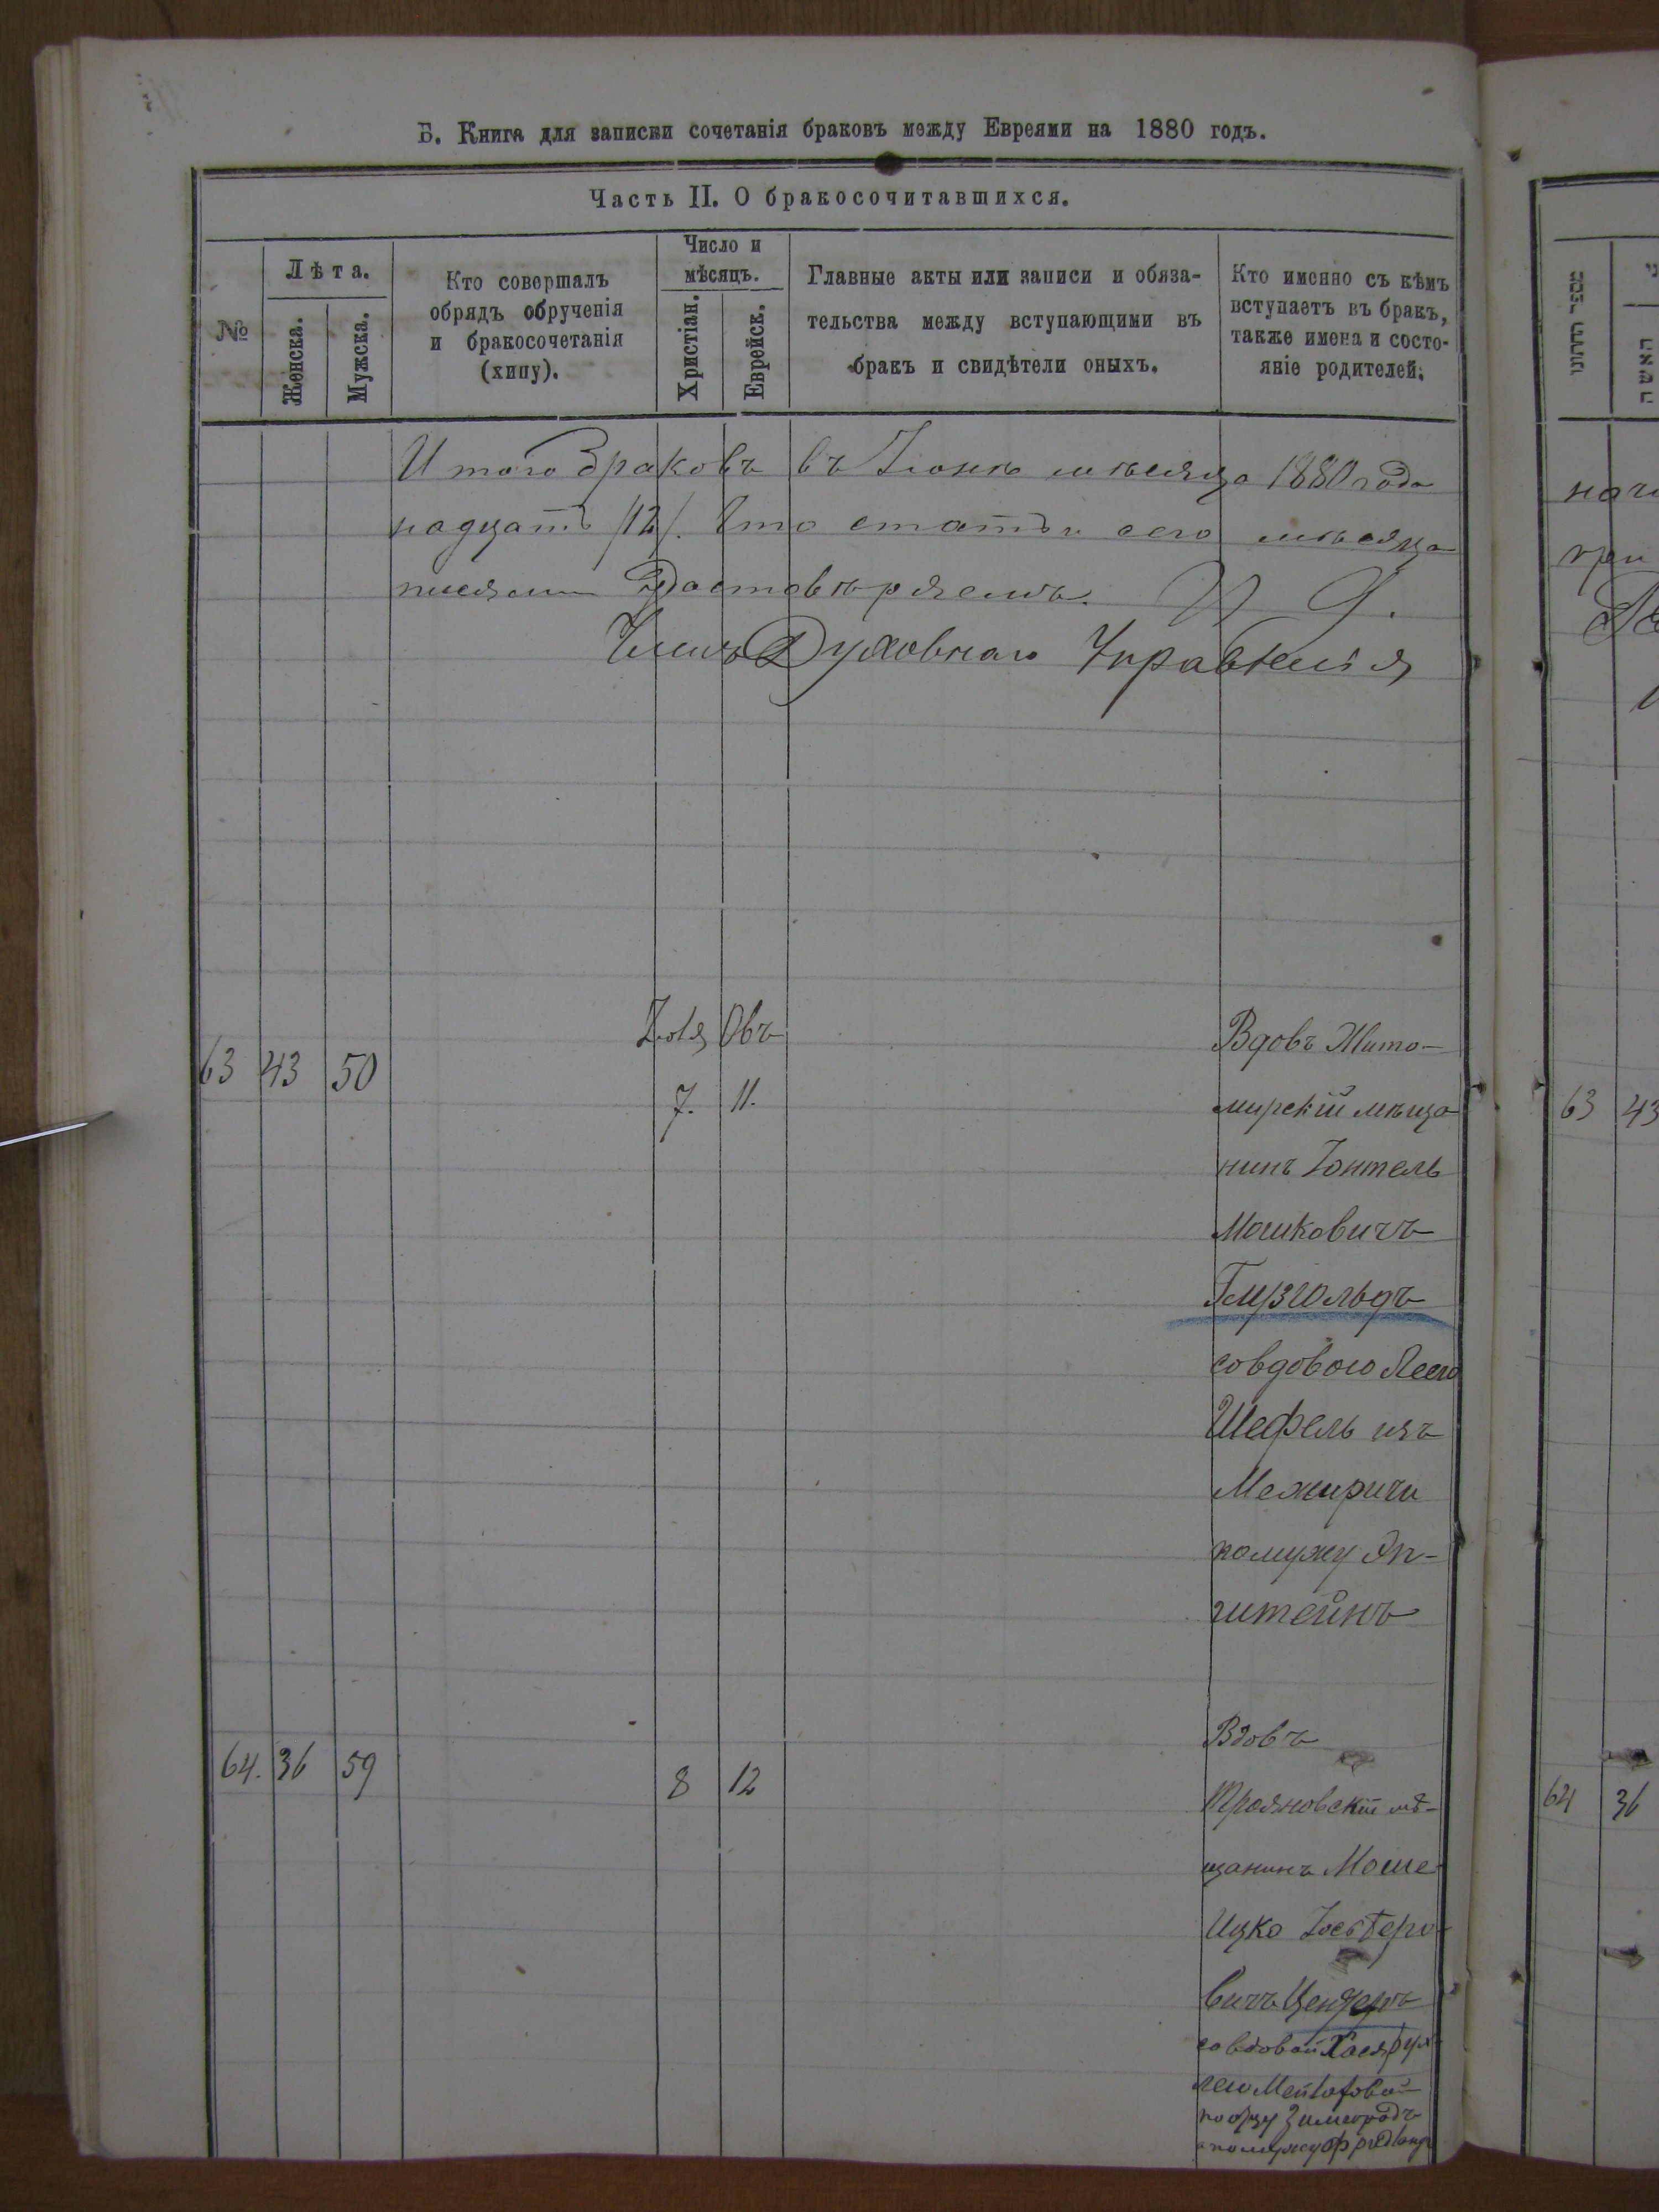 Б. Книга для записки сочетанія браковъ между Евреями на 1880 годъ.
Часть II. О бракосочитавшихся.
№
Лѣта.
Женска.
Мужска.
Кто совершалъ
обрядъ обрученія
и бракосочетанія
(хипу).
Число и
мѣсяцъ.
Христіан.
Еврейск.
Главные акты или записи и обяза-
тельства между вступающими въ
бракъ и свидѣтели оныхъ.
Кто именно съ кѣмъ
вступаетъ въ бракъ,
также имена и состо-
яніе родителей.
Итого браковъ въ Іюнѣ мѣсяца 1880 года
надцать /12/. Что статьи сего мѣсяца
Члень Духовнаго Управленія
63 43 50
Іюля Овъ
7. 11.
Вдовъ Жито-
мирскій мѣща
нинъ Іонтель
Мошковичъ
Глузгольдъ
совдовою
Шефель изъ
Межиричи
помужу Эп-
штейнъ
64. 36 59
8 12
Вдовъ
Трояновскій мѣ-
щанинъ Моше
Ицко
вичъ
совдовой Хася
поотцу
помужу
מספר החתונו
האשה
63 43
64 36